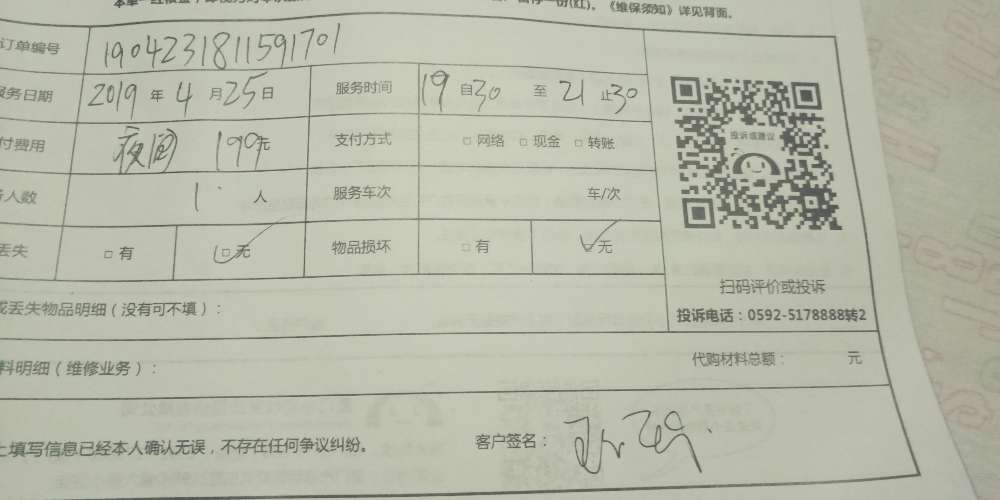 《维保须知》详见背面。
订单编号 1904231811591701
服务日期 2019 年 4 月 25 日 服务时间 19 自 30 至 21 止 30
付费用 夜间 199元 支付方式 □ 网络 □ 现金 □ 转账
人数 1 人 服务车次 车/次
丢失 □ 有 □ 无 物品损坏 □ 有 □ 无
投诉或建议
扫码评价或投诉
投诉电话：0592-5178888转2
或丢失物品明细（没有可不填）：
料明细（维修业务）： 代购材料总额： 元
上填写信息已经本人确认无误，不存在任何争议纠纷。 客户签名：